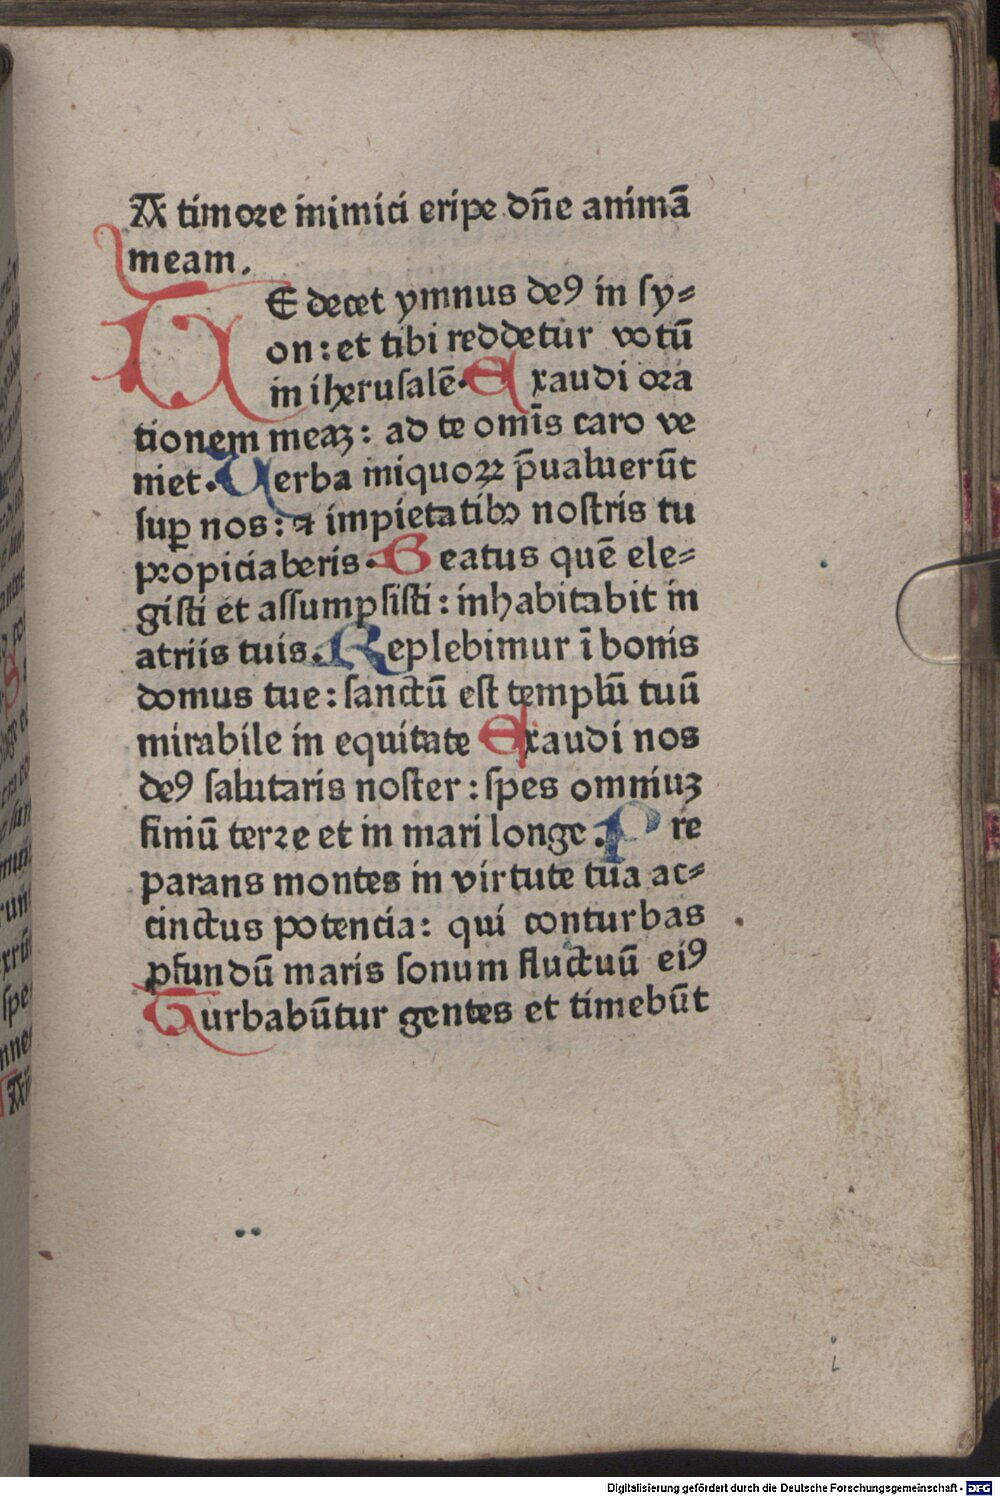 A timore inimici eripe dn̄e animā
meam.
TE decet ymnus deꝰ in ſy⸗
on: et tibi reddetur votū
in iheruſalē. Exaudi ora
tionem meaꝫ: ad te omīs caro ve
niet. Uerba iniquoꝝ p̄ualuerūt
ſuꝑ nos: ⁊ impietatibꝰ noſtris tu
propiciaberis. Beatus quē ele⸗
giſti et aſſumpſiſti: inhabitabit in
atriis tuis. Replebimur ī bonis
domus tue: ſanctū eſt templū tuū
mirabile in equitate Exaudi nos
deꝰ ſalutaris noſter: ſpes omniuꝫ
finiū terre et in mari longe. Pre
parans montes in virtute tua ac⸗
cinctus potencia: qui conturbas
ꝓfundū maris ſonum fluctuū eiꝰ
Turbabūtur gentes et timebūt
Digitalisierung gefördert durch die Deutsche Forschungsgemeinschaft - DFG